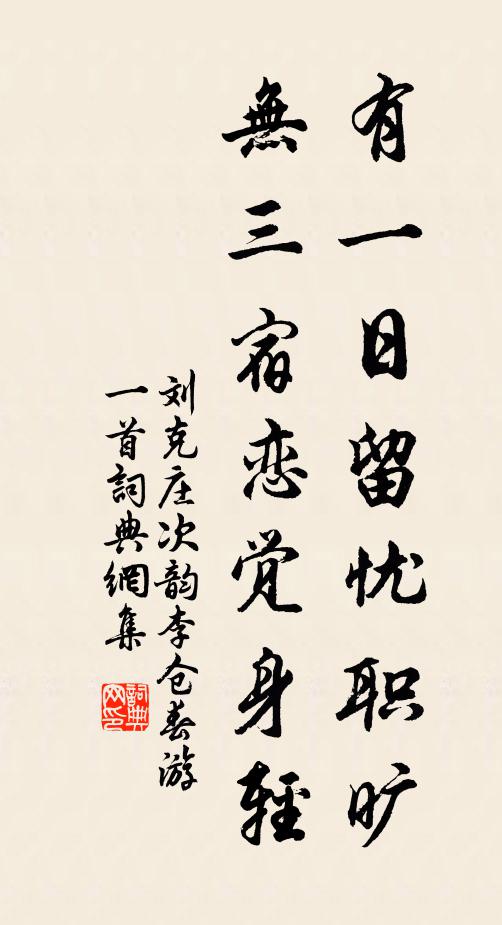 有一日留忧职旷
無三宿恋觉身輕
刘克庄次韵李仓春游
一首詞典網集
詞典網印